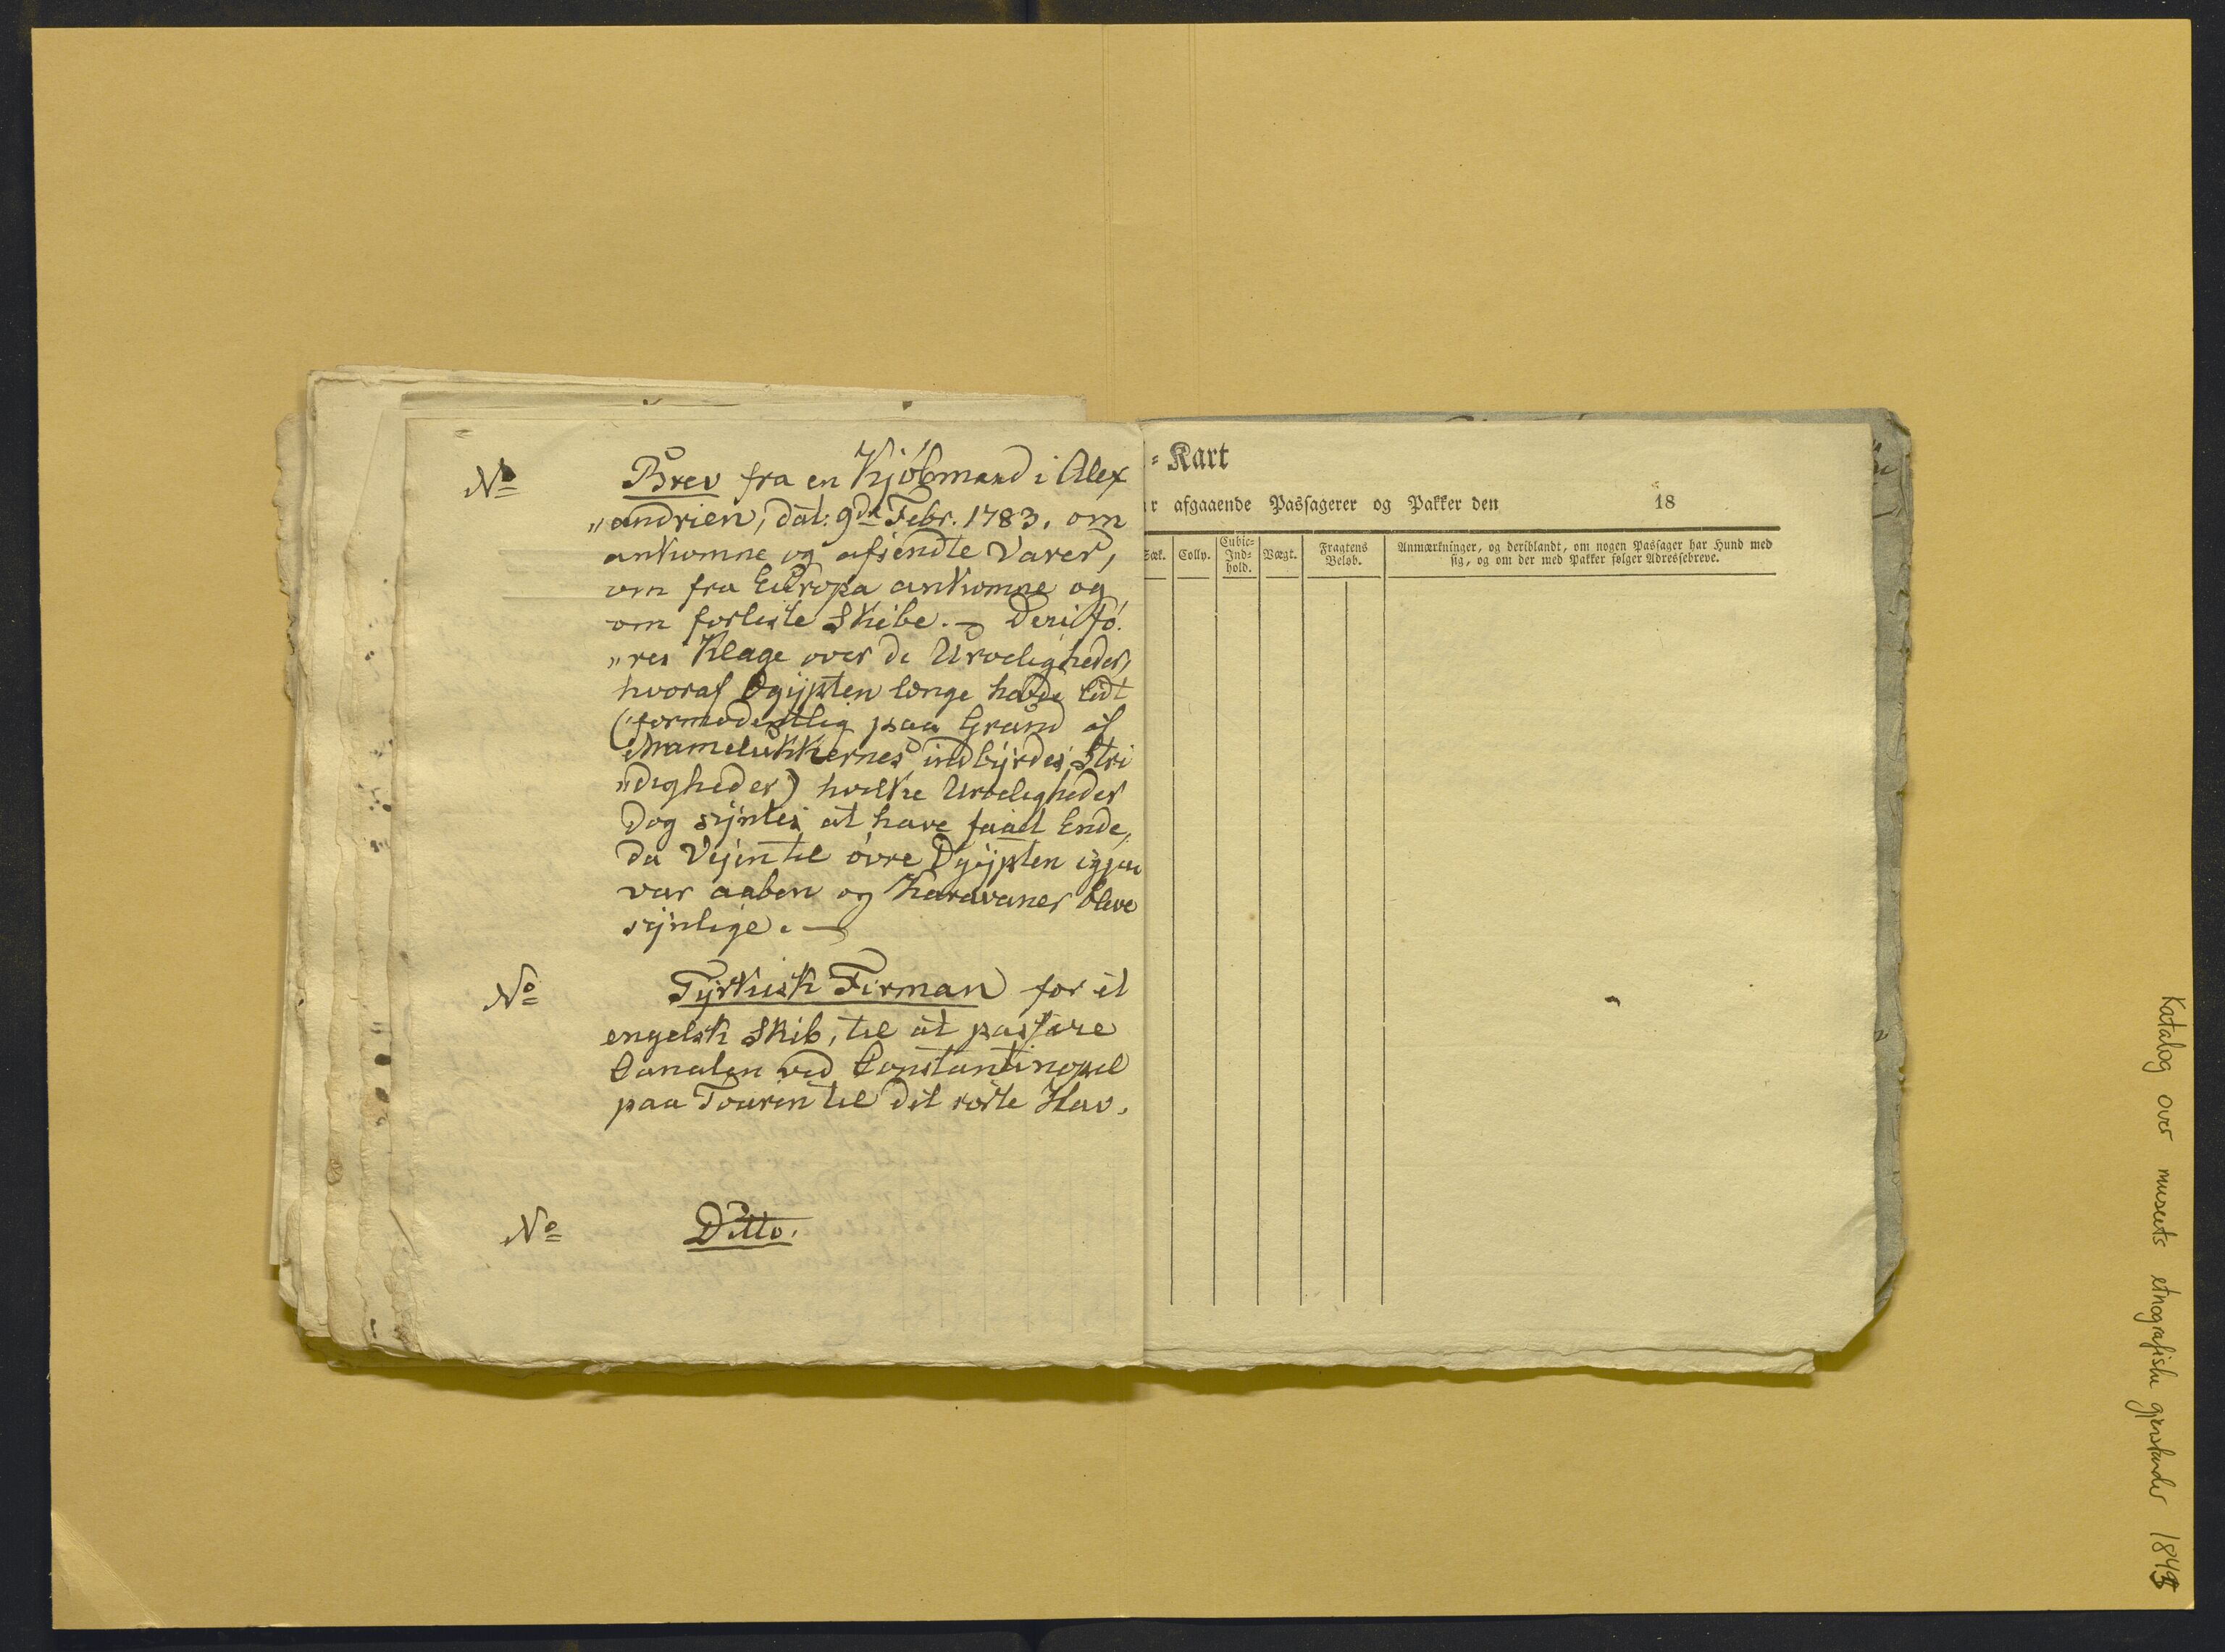 No Brev fra en Kjöbmand i Alex
"andrien, dat: 9de Febr. 1783. om
ankomne og afsendte Varer,
om fra Europa ankomne og
om forliste Skibe. – Deri fö.
"res Klage over de Uroeligheder,
hvoraf Ægypten længe havde lidt
(formodentlig paa Grund af
Mamelukkernes indbyrdes Stri
"digheder) hvilke Uroeligheder
dog syntes at have faaet Ende,
da Vejen til övre Ægypten igjen
var aaben og Karavaner bleve
synlige. –
No Tyrkisk Firman for et
engelsk Skib, til at passere
Canalen ved Constantinopel
paa Touren til det sorte Hav.
No Ditto.
= Kart
r afgaaende Passagerer og Pakker den 18
Sæk. Colly. Cubic-Ind-hold. Vægt. Fragtens Beløb. Anmærkninger, og deriblandt, om nogen Passager har Hund med
sig, og om der med Pakker følger Adressebreve.
Katalog over museets etnografiske gjenstander